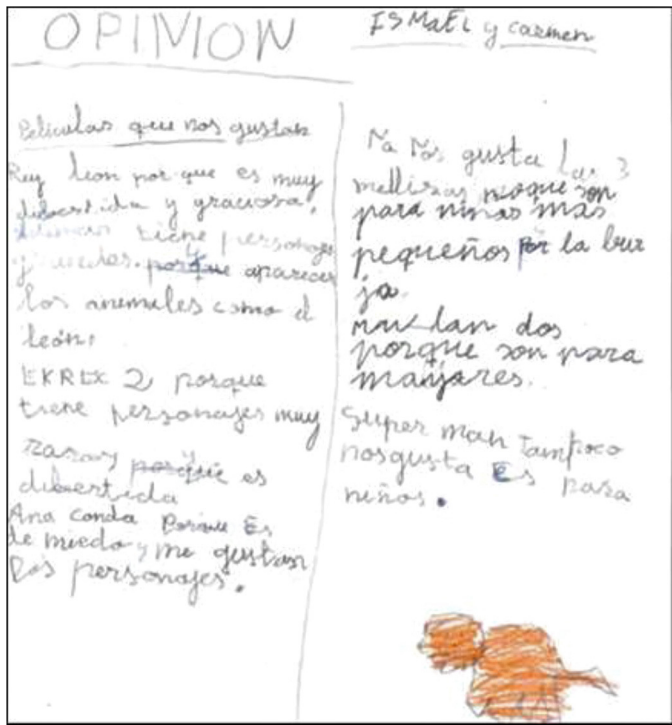 OPINION
ISMaEL y carmen
Peliculas que nos gustan
Rey leon por que es muy
divertida y graciosa,
tiene personajes
y porque aparecen
los animales como el
león.
EKREX 2 porque
tiene personajes muy
raros y porque es
divertida
Ana conda Porque Es
de miedo y me gustan
los personajes.
No Nos gusta las 3
mellisas porque son
para niñas mas
pequeños por la bru
ja.
mulan dos
porque son para
mayores.
Super man Tampoco
nosgusta Es para
niños.